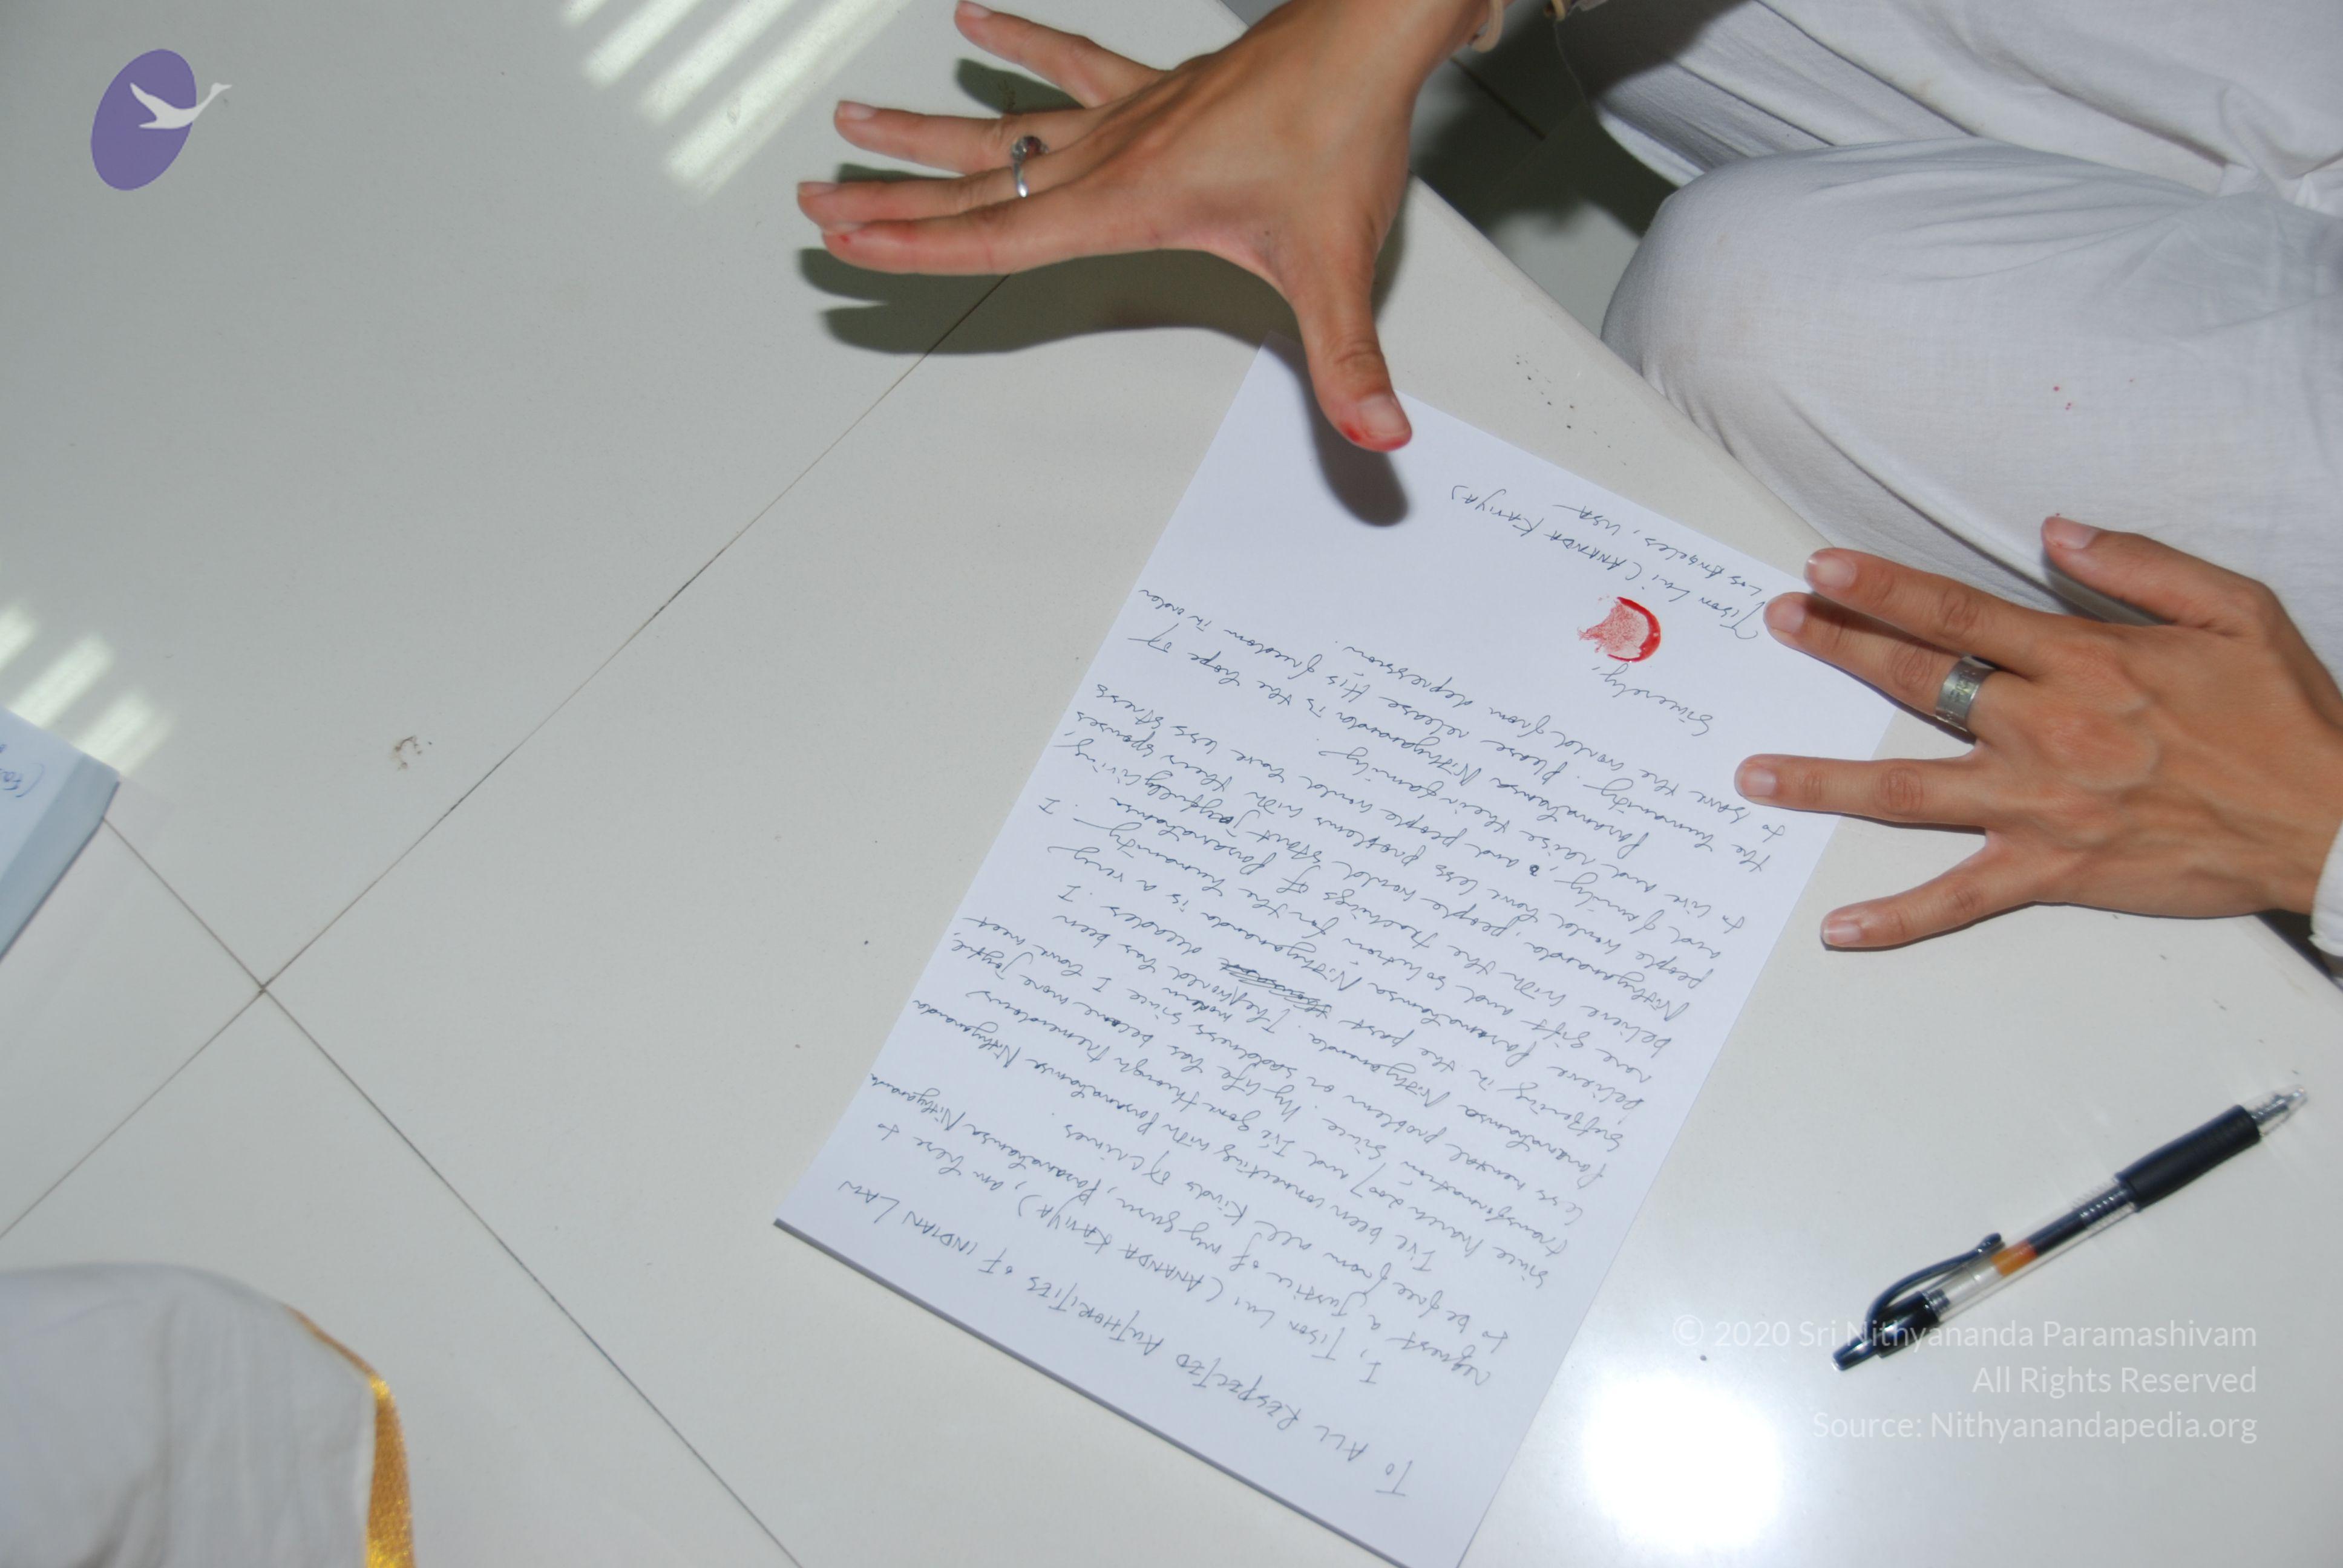 TO ALL RESPECTED AUTHORITIES OF INDIAN LAW
I, TISON LUI (ANANDA KAVIYA), am here to
request a justice of my guru, Paramahamsa Nithyananda
to be free from all kinds of crimes.
I've been connecting with Paramahamsa Nithyananda
since March 2007 and I've gone through tremendous
transformation since. My life has become more joyful,
less mental problem or sadness since I have meet
Paramahamsa Nithyananda. The modern world has been
suffering in the past decades. I
believe Paramahamsa Nithyananda is a very
rare gift and solution for the humanity. I
believe with the teachings of Paramahamsa
Nithyananda, people would start joyfully living,
people would have less problems with their spouses
and family, and people would have less stress
to live and raise their family.
Paramahamsa Nithyananda is the hope of
the humanity. Please release His freedom in order
to save the world from depression.
Sincerely,
Tison Lui (ANANDA KAVIYA)
Los Angeles, USA
© 2020 Sri Nithyananda Paramashivam
All Rights Reserved
Source: Nithyanandapedia.org